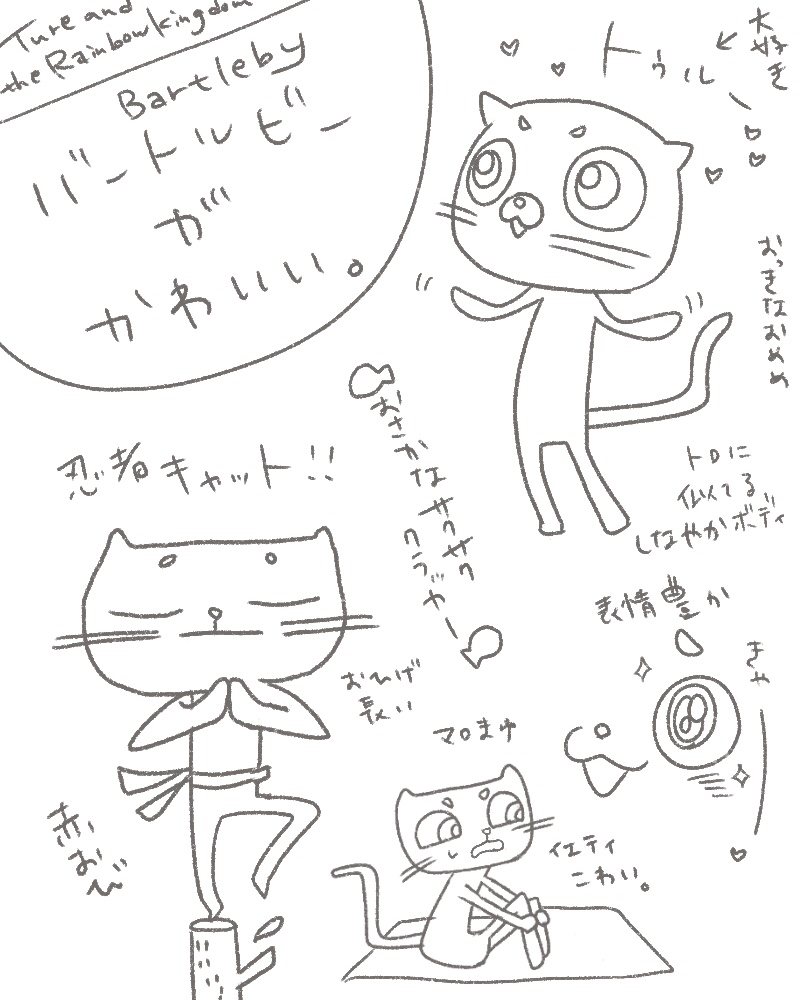 Ture and
the Rainbow kingdom
Bartleby
バートルビー
が
かわいい。
大好き
トゥルー
おっきなおめめ
おさかなサクサク
クラッカー
トロに
似てる
しなやかボディ
忍者キャット!!
表情豊か
きゃー
おひげ
長い
マロまゆ
赤い
おび
イエティ
こわい。